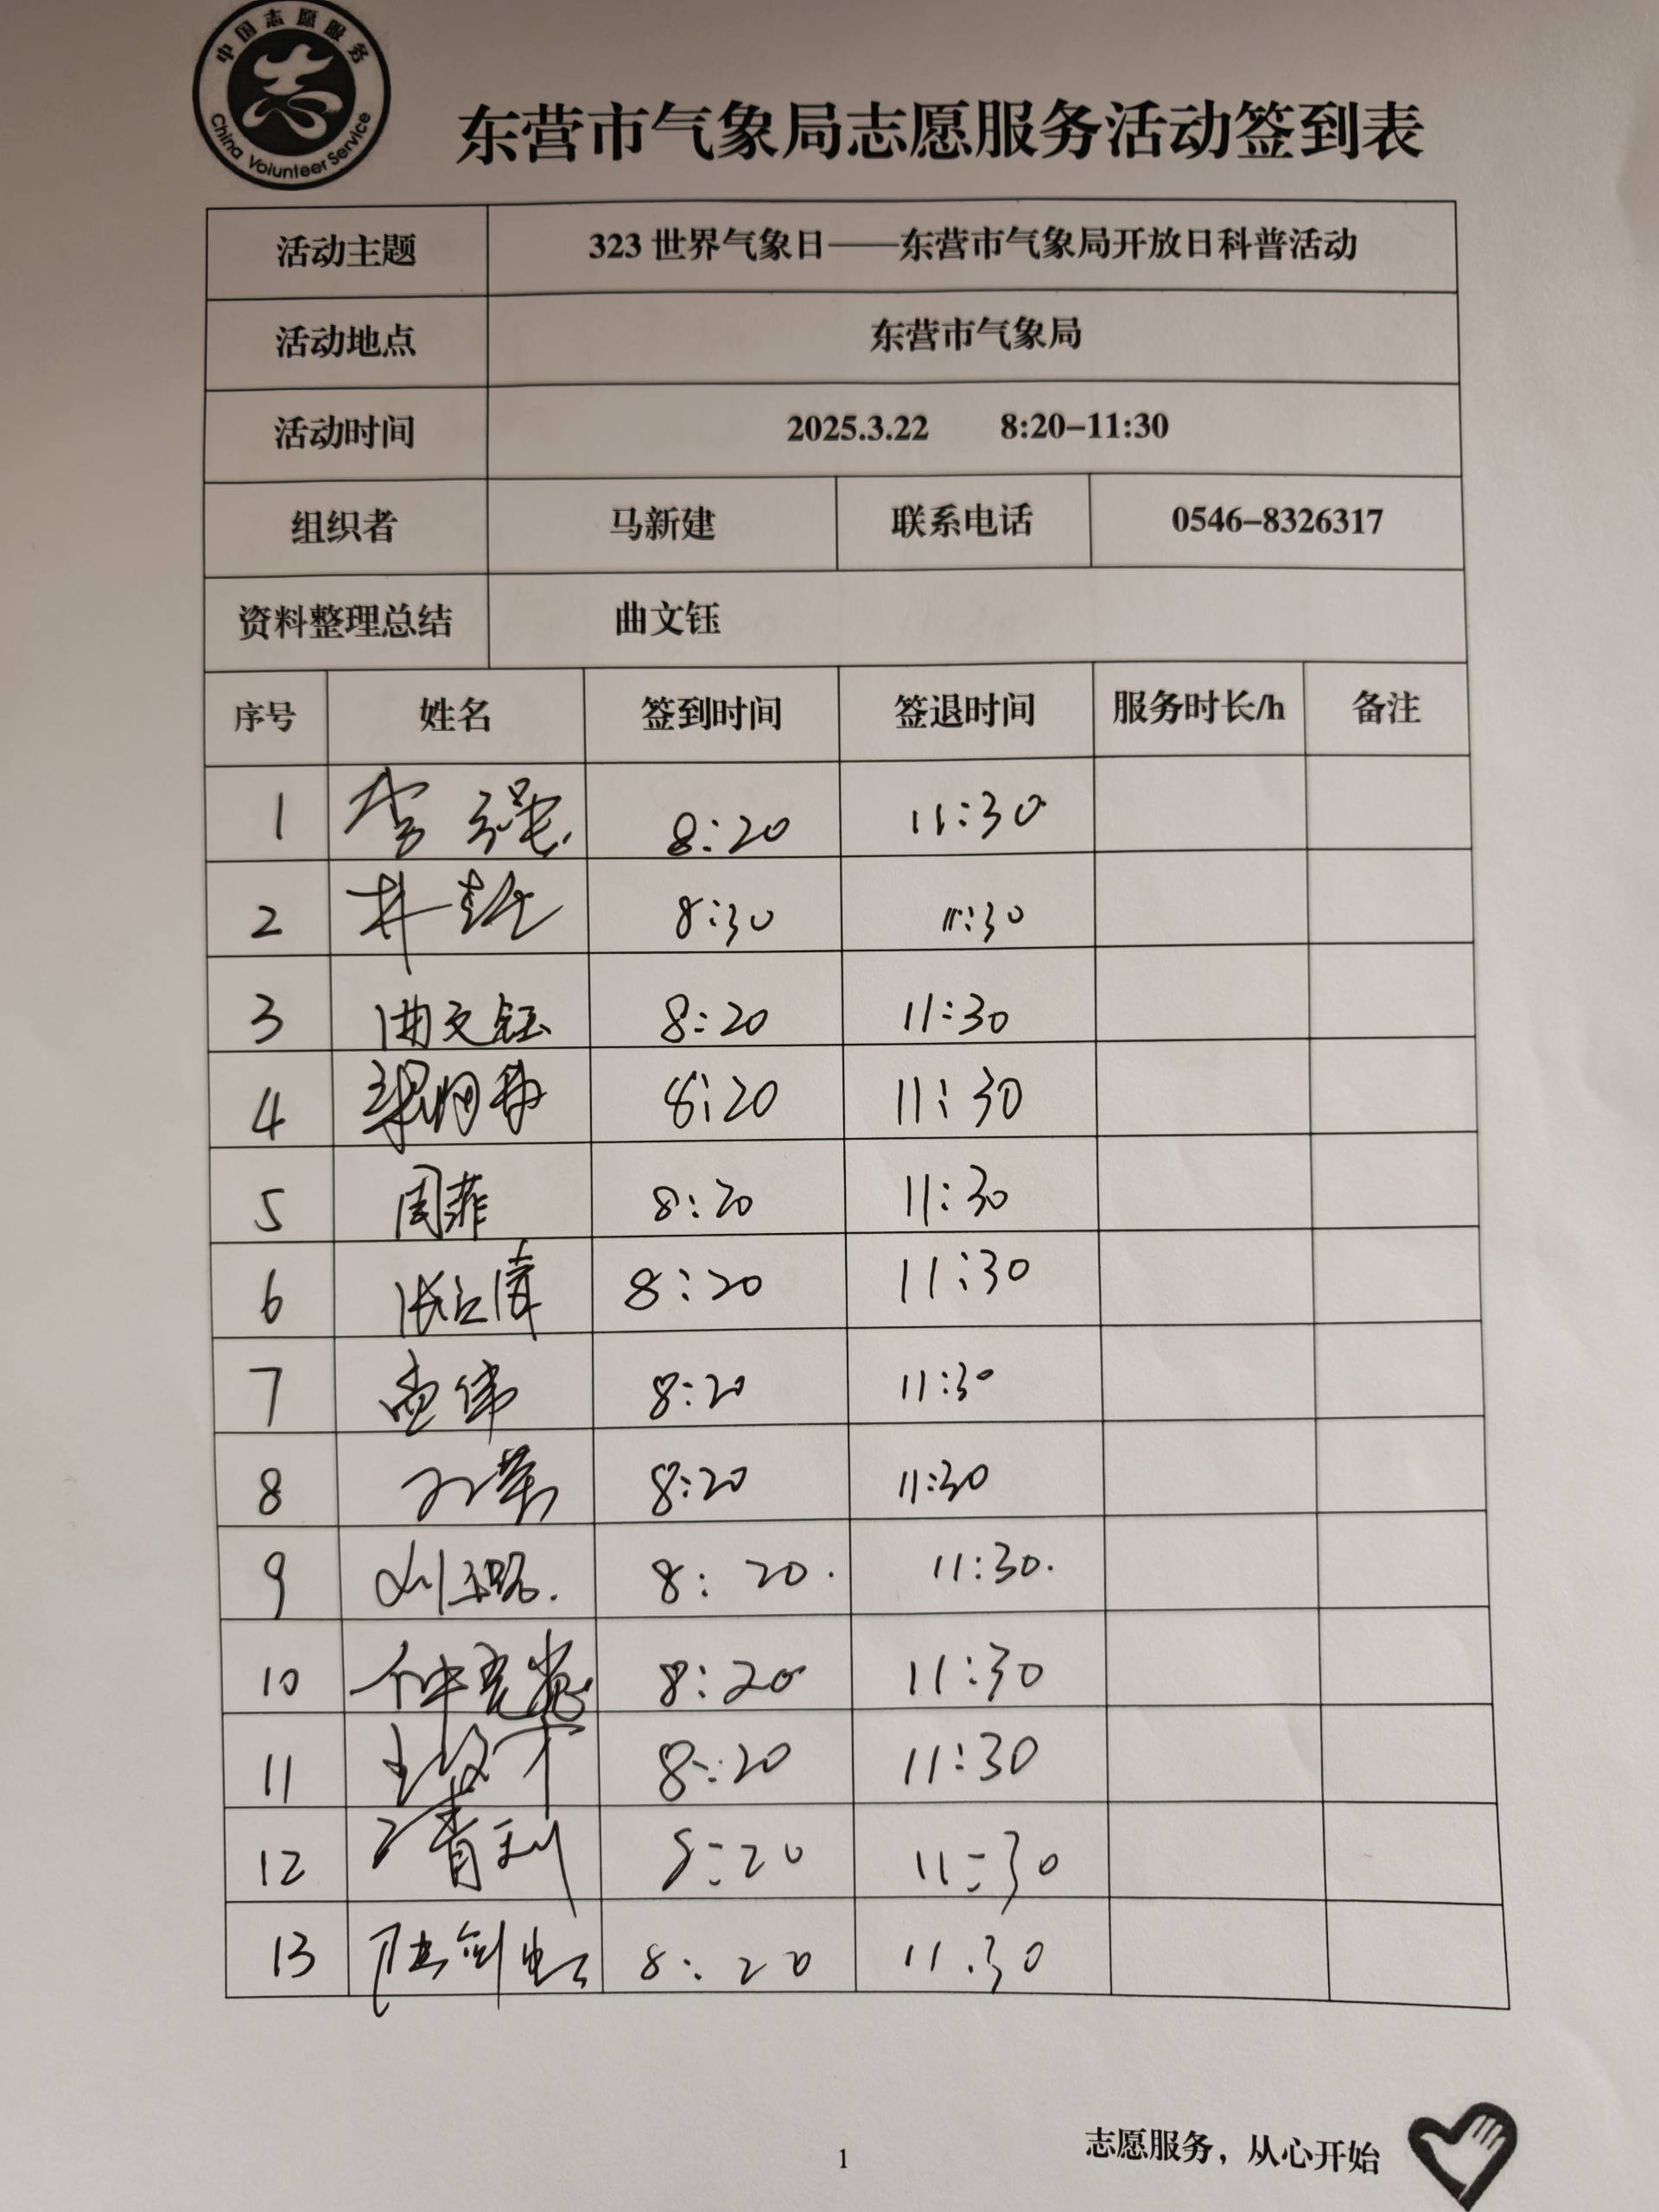 中国志愿服务
China Volunteer Service
东营市气象局志愿服务活动签到表
活动主题 323世界气象日——东营市气象局开放日科普活动
活动地点 东营市气象局
活动时间 2025.3.22 8:20-11:30
组织者 马新建 联系电话 0546-8326317
资料整理总结 曲文钰
序号 姓名 签到时间 签退时间 服务时长/h 备注
1 李强 8:20 11:30
2 井 8:30 11:30
3 曲文钰 8:20 11:30
4 梁 8:20 11:30
5 周菲 8:20 11:30
6 张 8:20 11:30
7 孟伟 8:20 11:30
8 8:20 11:30
9 刘 8:20. 11:30.
10 仲 8:20 11:30
11 王 8:20 11:30
12 8:20 11:30
13 陆剑虹 8:20 11:30
1
志愿服务，从心开始